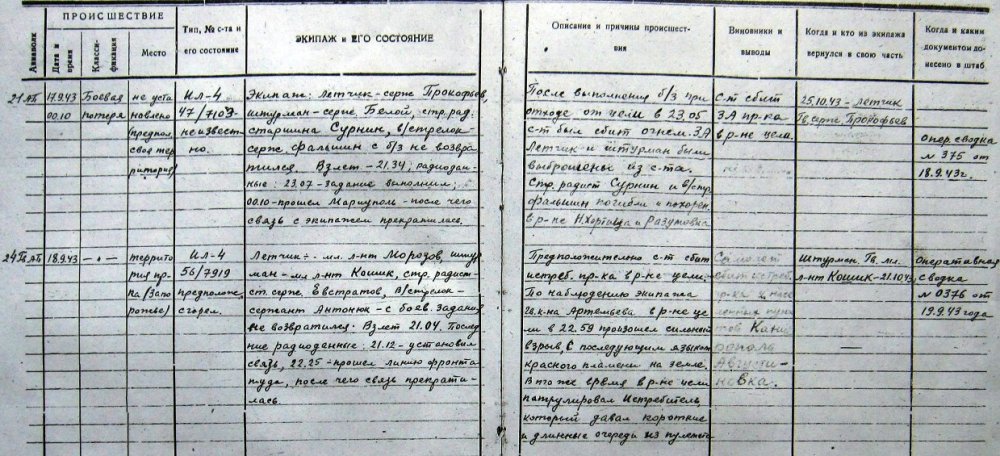 Авиаполк
ПРОИСШЕСТВИЕ
Дата и время
Класси-
фикация
Место
Тип, № с-та и
его состояние
ЭКИПАЖ и ЕГО СОСТОЯНИЕ
Описание и причины происшест-
вия
Виновники и
выводы
Когда и кто из экипажа
вернулся в свою часть
Когда и каким
документом до-
несено в штаб
21 АП
17.9.43
00.10
Боевая
потеря
не уста
новлено
предпол.
своя тер
ритория/
Ил-4
47/7103
неизвест-
но.
Экипаж: Летчик-серж Прокофьев,
штурман-серж Белой, стр.рад.
старшина Сурнин, в/стрелок-
серж Фальшин с б/з не возвра
тился. Взлет-21.34; радиодан-
ные: 23.07-задание выполнил;
00.10-прошел Мариуполь-после чего
связь с экипажем прекратилась.
После выполнения б/з при
отходе от цели в 23.05
с-т был сбит огнем ЗА
Летчик и штурман были
выброшены из с-та.
Стр. радист Сурнин и в/стр
Фальшин погибли и похорон.
в р-не Н.Хортица и Разумовка
С-т сбит
ЗА пр-ка
в р-не цели
25.10.43-летчик
Гв.серж. Прокофьев
опер. сводка
№ 375 от
18.9.43г.
24 Гв АП
18.9.43
—„—
территo
рия пр-
ка/Запо
рожье/
Ил-4
56/7919
предполож.
сгорел.
Летчик- мл. л-нт Морозов, штур
ман-мл л-нт Кошик, стр. радист-
ст. серж. Евстратов, в/стрелок-
сержант Антонюк-с боев. задани
не возвратился. Взлет 21.04. Послед
ние радиоданные: 21.12-установил
связь, 22.25-прошел линию фронта
туда, после чего связь прекрати-
лась.
Предположительно с-т сбит
истреб. пр-ка в р-не цели.
По наблюдению экипажа
гв. к-на Артемьева в р-не це
ли в 22.59 произошел сильный
взрыв, с последующим языком
красного пламени на земле.
В то же время в р-не цели
патрулировал истребитель
который давал короткие
и длинные очереди из пулемета
Самолет
сбит истреб.
пр-ка
Августи-
новка.
Штурман Гв. мл.
л-нт Кошик-21.10.43
Оперативная
сводка
№ 0376 от
19.9.43 года